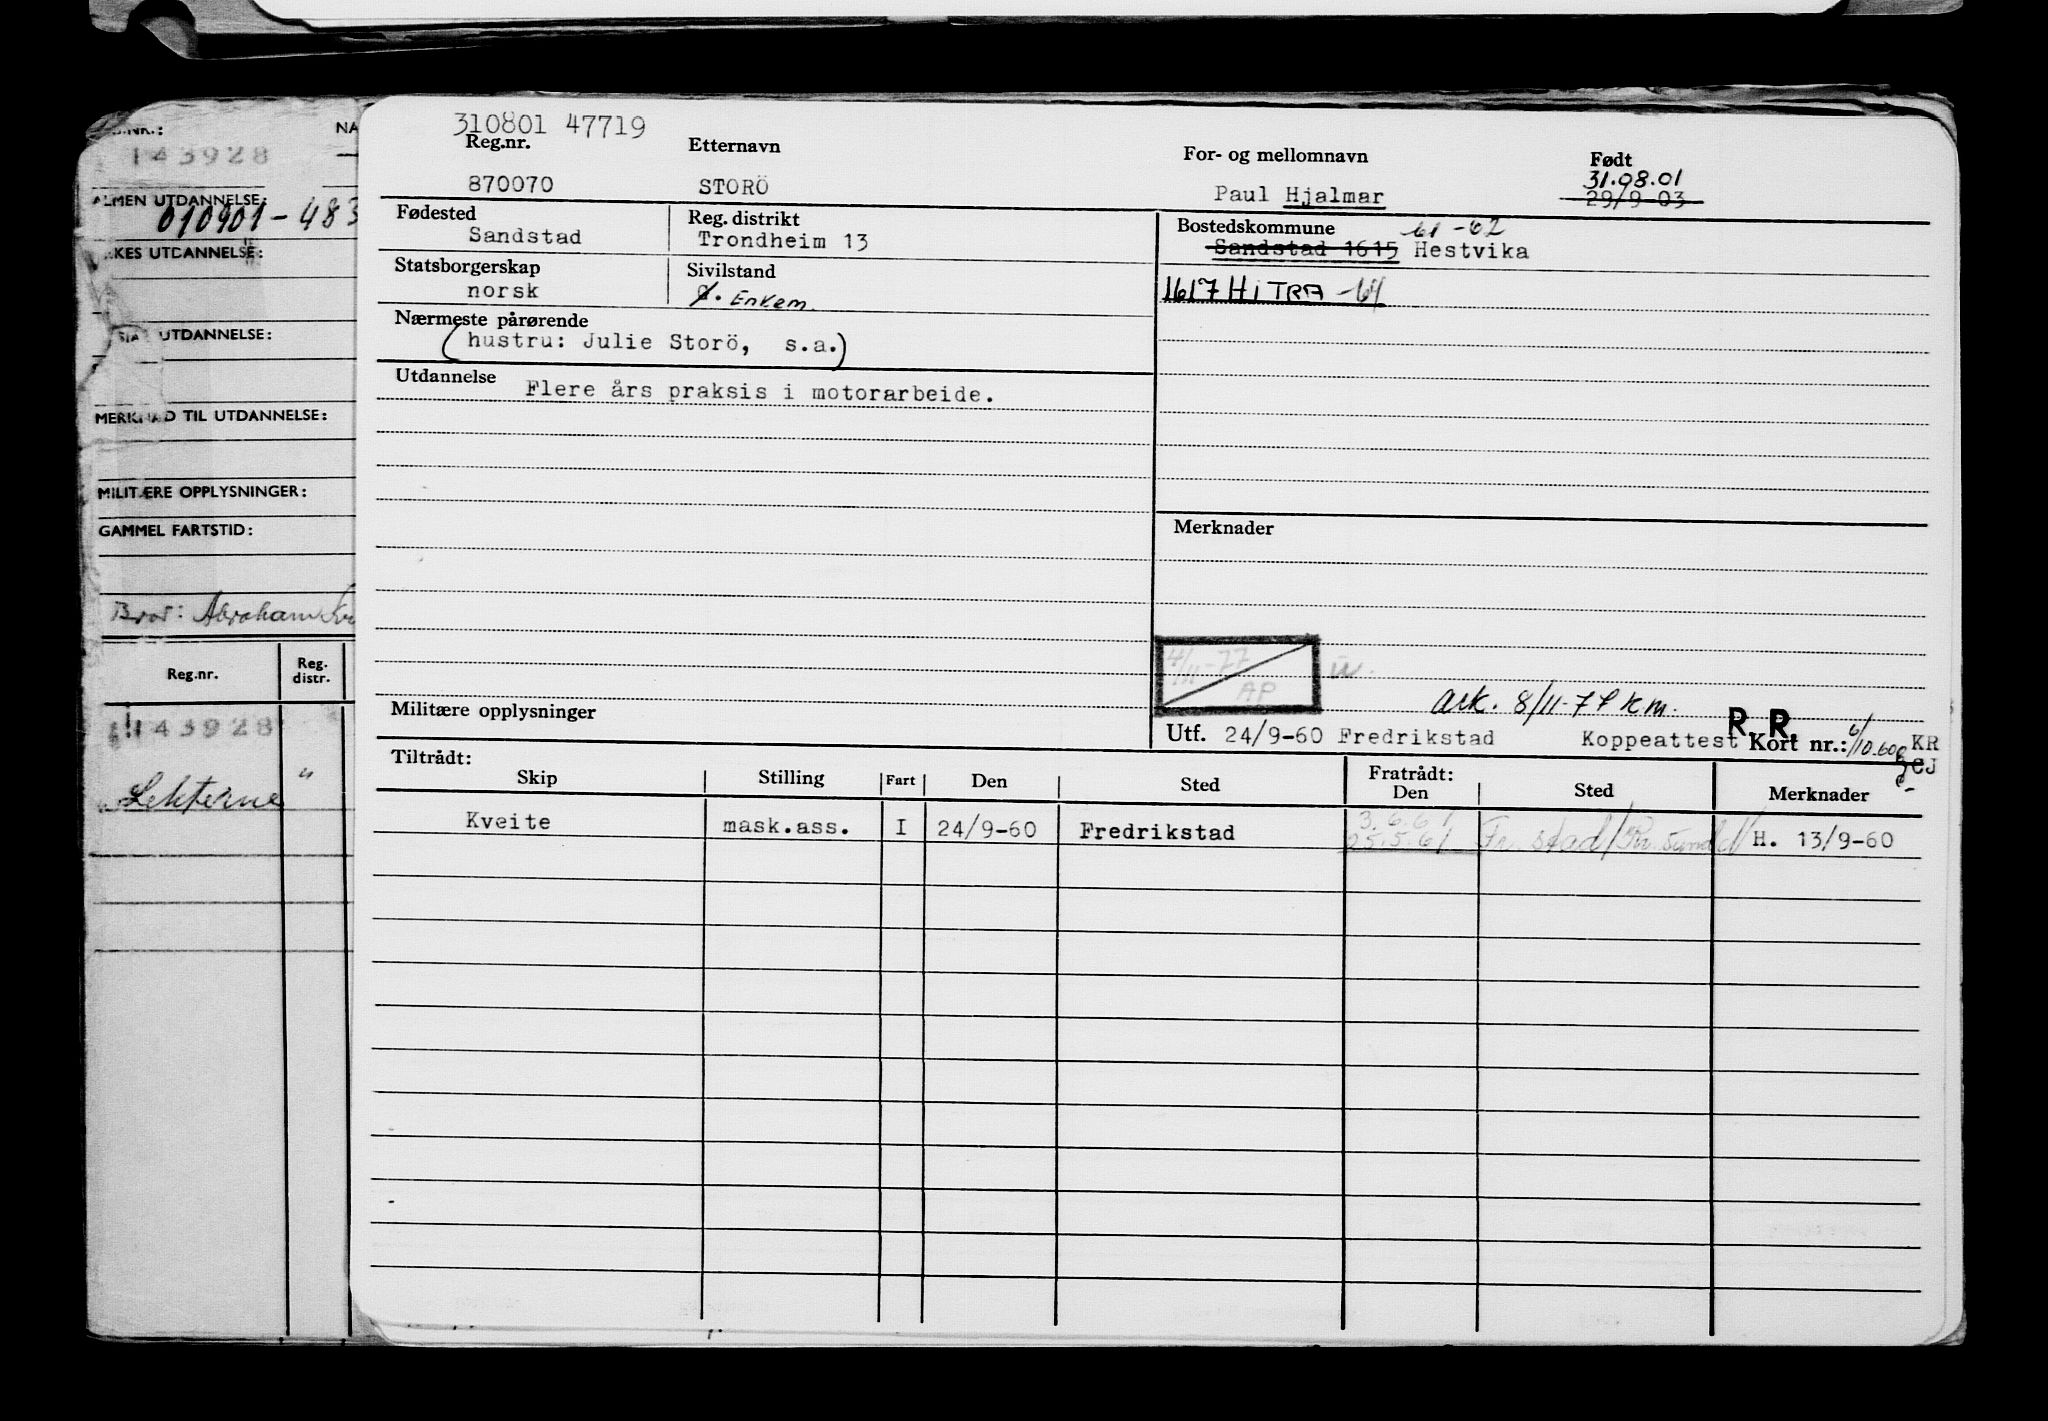 NA
143928
ALMEN UTDANNELSE:
010901-483
UTDANNELSE:
UTDANNELSE:
MERKNAD TIL UTDANNELSE:
MILITÆRE OPPLYSNINGER:
GAMMEL FARTSTID:
Bror: Abraham
Reg.nr.
Reg. distr.
143928
Lekterne "
310801 47719
Reg.nr. Etternavn For- og mellomnavn Født
31.08.01
870070 STORÖ Paul Hjalmar 29/9-03
Fødested Reg. distrikt Bostedskommune 61-62
Sandstad Trondheim 13 Sandstad 1615 Hestvika
Statsborgerskap Sivilstand
norsk g. Enkem. 1617 HITRA -64
Nærmeste pårørende
(hustru: Julie Storö, s.a.)
Utdannelse Flere års praksis i motorarbeide.
Merknader
4/11-77
AP
Ark. 8/11-77 Km.
Militære opplysninger R.R.
Utf. 24/9-60 Fredrikstad Koppeattest Kort nr.: 6/10.60 KR
CJ
Tiltrådt: Fratrådt:
Skip Stilling Fart Den Sted Den Sted Merknader
3.6.61
Kveite mask.ass. I 24/9-60 Fredrikstad 25.5.61 Fr.stad/Kr.sund N H. 13/9-60